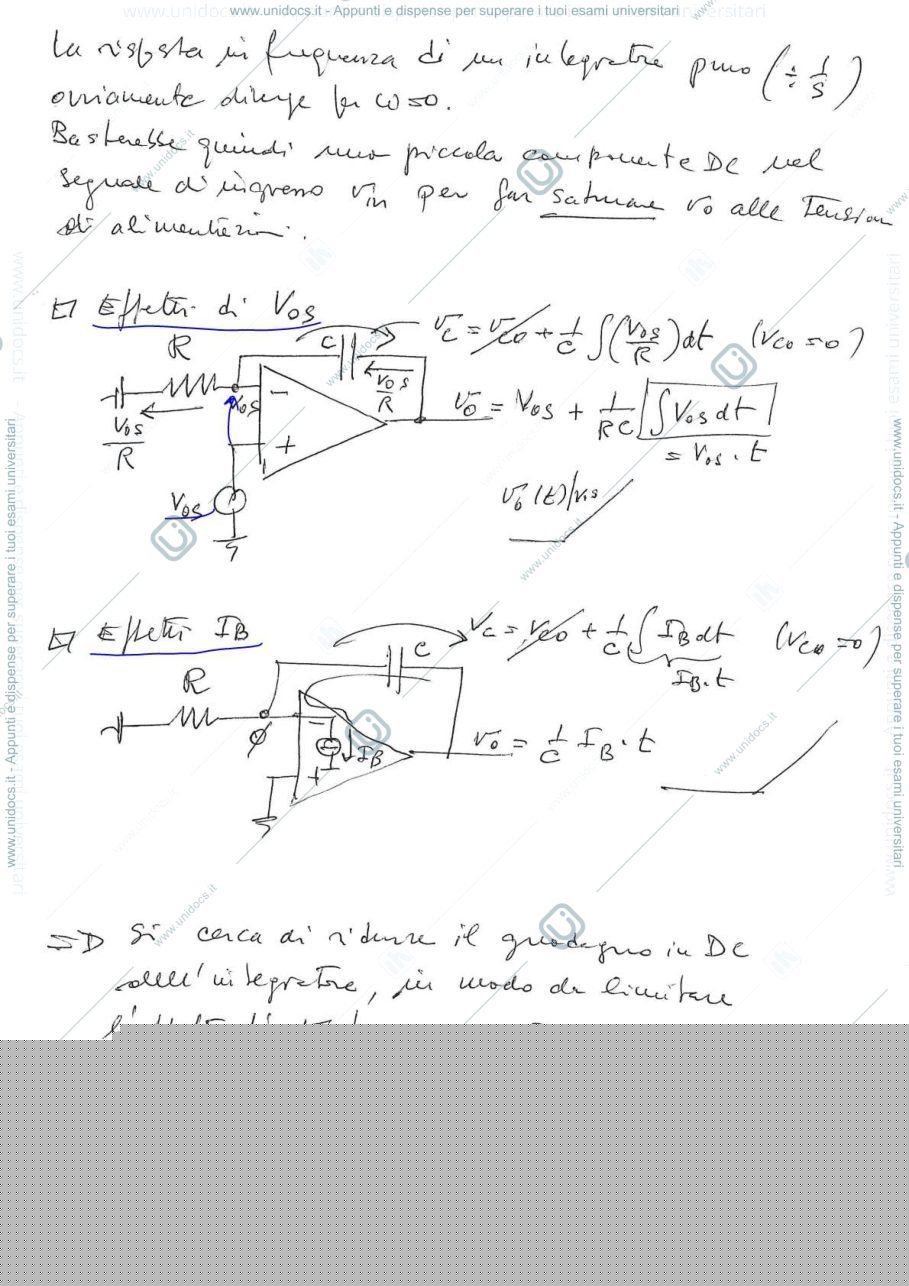 www.unidocs.it - Appunti e dispense per superare i tuoi esami universitari
La risposta in frequenza di un integratore puro (÷ 1/s)
ovviamente diverge per ω=0.
Basterebbe quindi una piccola componente DC nel
segnale d'ingresso vin per far saturare vo alle Tensioni
di alimentazione.
Effetti di VOS
vC = vC0 + 1/C ∫(VOS/R)dt (VC0 = 0)
R
C
VOS
VOS/R
VOS/R
-
+
VOS
vo = VOS + 1/RC ∫VOS dt
= VOS · t
vo(t)|VOS
Effetti IB
VC = VC0 + 1/C ∫ IB dt (VC0 = 0)
IB·t
R
C
-
+
IB
vo = 1/C IB · t
=> Si cerca di ridurre il guadagno in DC
dell'integratore, in modo da limitare
www.unidocs.it - Appunti e dispense per superare i tuoi esami universitari
www.unidocs.it - Appunti e dispense per superare i tuoi esami universitari